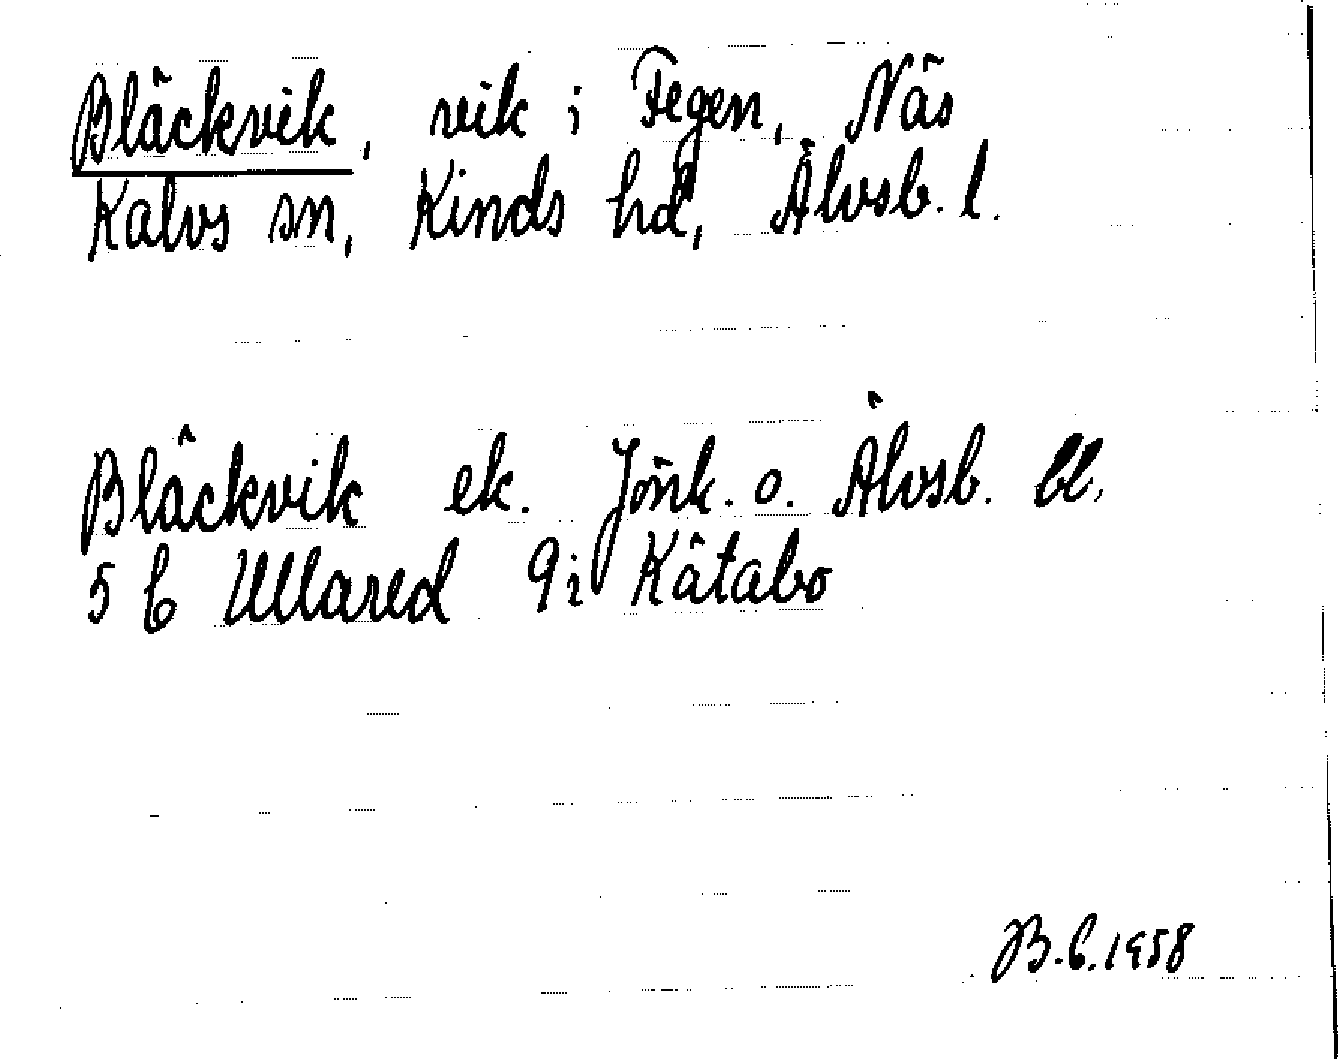 Bläckvik, vik i Fegen, Näs
Kalvs sn, Kinds hd, Älvsb. l.
Bläckvik ek. Jönk. o. Älvsb. ll.
5 C Ullared 9i Kätabo
B.C. 1958